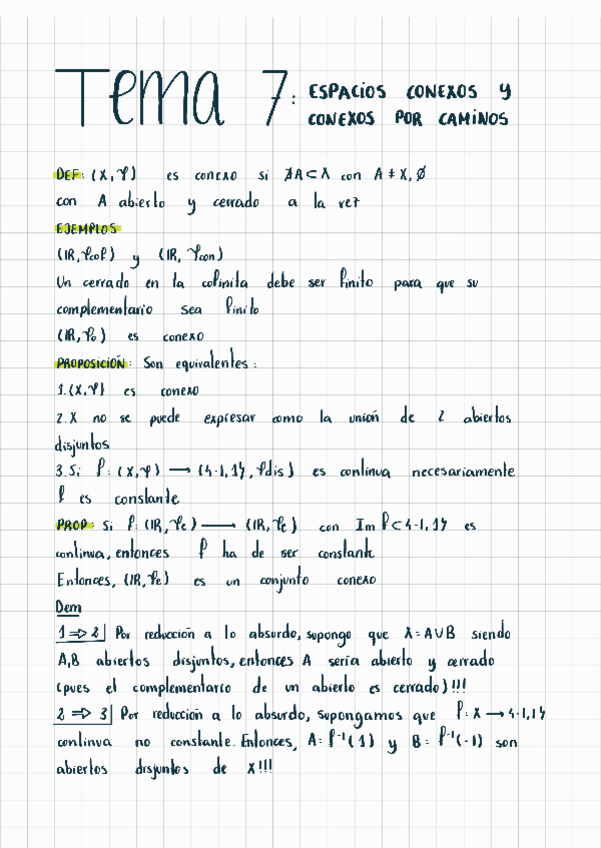 Tema 7: ESPACIOS CONEXOS Y
CONEXOS POR CAMINOS
DEF: (X, τ) es conexo si ∄A⊂X con A ≠ X, ∅
con A abierto y cerrado a la vez
EJEMPLOS
(IR, τcof) y (IR, τcon)
Un cerrado en la cofinita debe ser finito para que su
complementario sea finito
(IR, τo) es conexo
PROPOSICIÓN: Son equivalentes:
1. (X, τ) es conexo
2. X no se puede expresar como la unión de 2 abiertos
disjuntos
3. Si f: (X, τ) → ({-1,1}, τdis) es continua necesariamente
f es constante
PROP Si f: (IR, τe) → (IR, τe) con Im f ⊂ {-1,1} es
continua, entonces f ha de ser constante
Entonces, (IR, τe) es un conjunto conexo
Dem
1 ⇒ 2 Por reducción a lo absurdo, supongo que X = A∪B siendo
A,B abiertos disjuntos, entonces A sería abierto y cerrado
(pues el complementario de un abierto es cerrado)!!!
2 ⇒ 3 Por reducción a lo absurdo, supongamos que f: X → {-1,1}
continua no constante. Entonces, A = f⁻¹(1) y B = f⁻¹(-1) son
abiertos disjuntos de X!!!